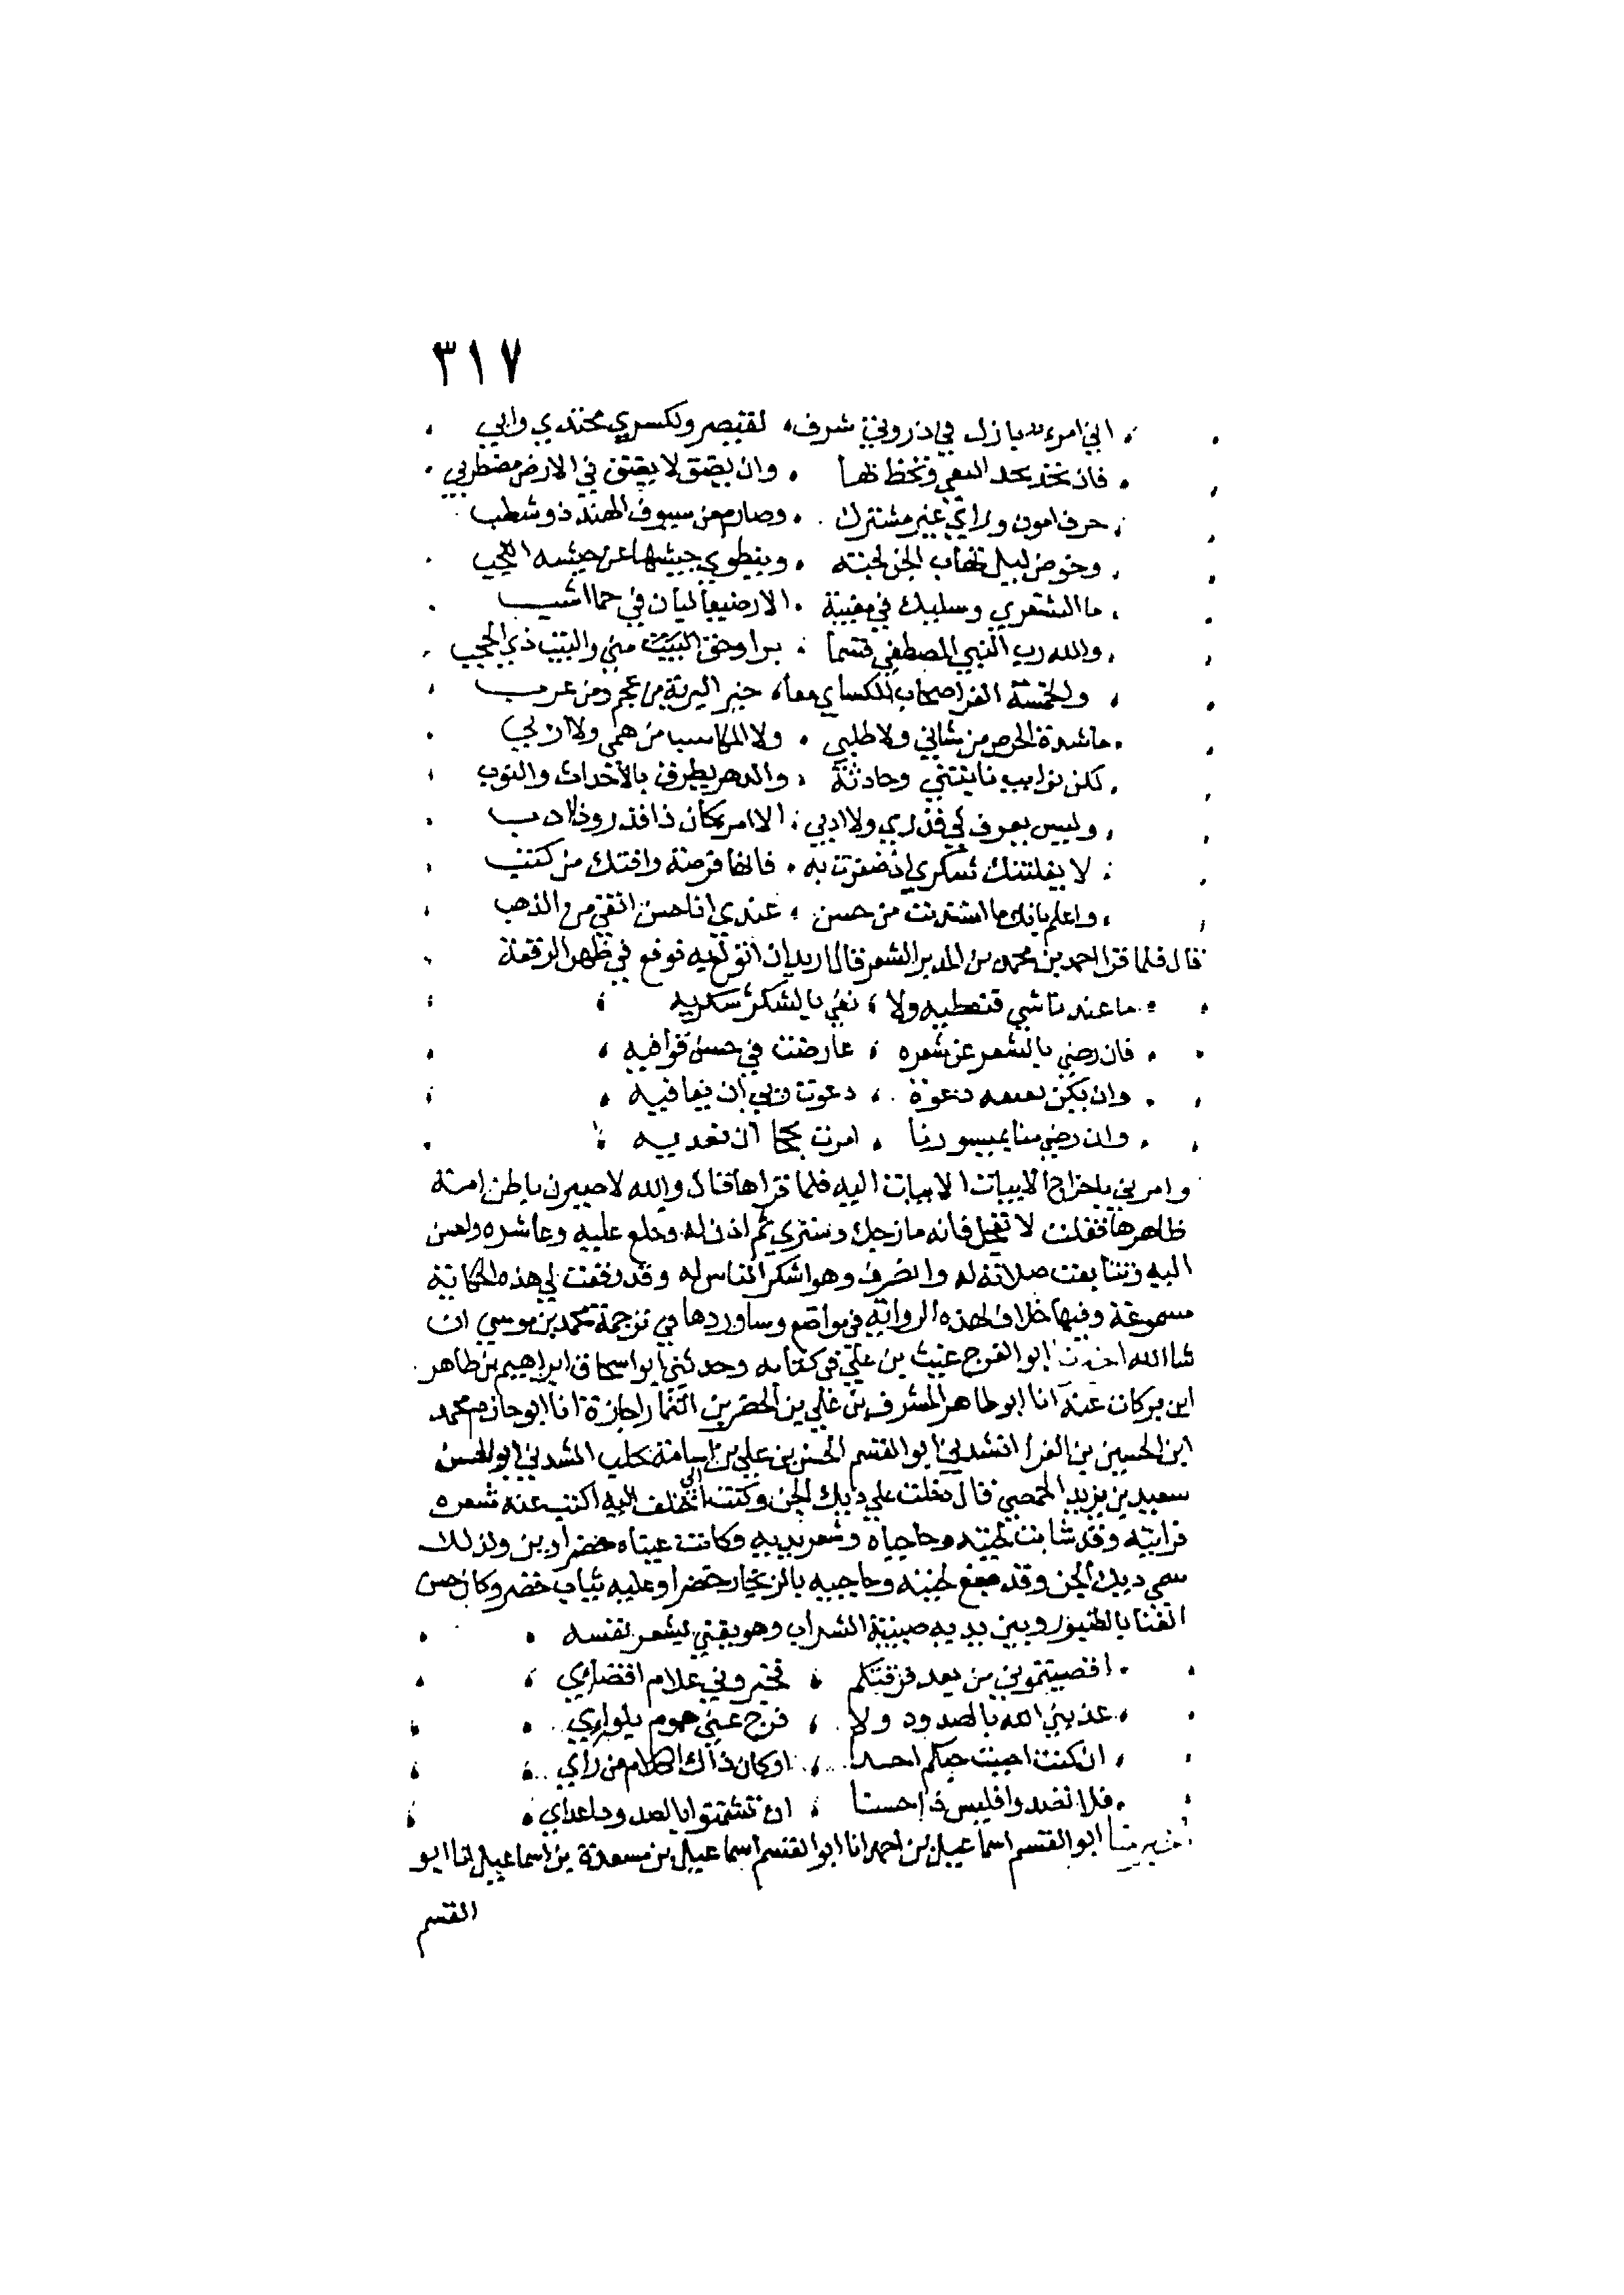 ٣١٧
اني امرء بازل في ذروتي شرف لقيصر ولكسري محتدي وابي
فان تجد تجد النعمي وتحظ بها وان يضق لا يضق في الارض مضطربي
حرف امون وراي غير مشترك وصارم من سيوف الهند ذو شطب
وخوض ليل تهاب الجن لجته وينطوي جيشها عن جيشه اللجب
ما الشنفري وسليك في مغيبة الا رضيعا لبان في حما اشب
والله رب النبي المصطفي قسما برا وحق البيت مني والبيت ذي الحجب
والخمسة الغر اصحاب الكساي معا خير البرية من عجم ومن عرب
ما شدة الحرص من شاني ولا طلبي ولا المكاسب من همي ولا اربي
لكن نوايب نابتني وحادثة والدهر يطرق بالاحداث والنوب
وليس يعرف لي قدري ولا ادبي الا امرء كان ذا قدر وذا ادب
لا يفلتنك شكري ان ضفرت به فانها فرصة وافتك من كثب
واعلم بانك ما اشتريت من حسن عندي انا حسن انقي من الذهب
قال فلما قرا احمد بن محمد بن المدبر الشعر قال اريد ان اتولع به فوقع في ظهر الرقعة
ما عندنا شي فنعطيه ولا نفي بالشكر شكريه
فان رضي بالشعر عن شعره عارضت في حسن قوافيه
وان يكن تقنعه دعوة دعوت ربي ان يعافيه
وان رضي منا بميسورنا امرت نجحا ان تغديه
وامرني باخراج الابيات الابيات اليه فلما قراها قال والله لاصيرن باطن امته
ظاهرها فقلت لا تعجل فانه مازحك وستري ثم اذن له وخلع عليه وعاشره واحسن
اليه وتتابعت صلاته له وانصرف وهو اشكر الناس له وقد وقعت لي هذه الحكاية
مسموعة وفيها خلاف لهذه الرواية في مواضع وساوردها في ترجمة محمد بن موسي ان
شا الله اخبرنا ابو الفرج غيث بن علي في كتابه وحدثني ابو اسحاق ابراهيم بن طاهر
ابن بركات عنه انا ابو طاهر المشرف بن علي بن الخضر بن التمار اجازة انا ابو حازم محمد
ابن الحسين بن الفرا انشدني ابو القسم الحسن بن علي بن اسامة بحلب انشدني ابو الحسن
سعيد بن يزيد الحمصي قال دخلت علي ديك الجن وكنت اختلف اليه اكتب عنه شعره
فرايته وقد شابت لحيته وحاجباه وشعر يديه وكانت عيناه خضراوين ولذلك
سمي ديك الجن وقد صبغ لحيته وحاجبيه بالزنجار خضرا وعليه ثياب خضر وكان حسن
الغنا بالطنبور وبين يديه صينية الشراب وهو يغني بشعر لنفسه
اقصيتموني من بعد فرقتكم فخبروني علام اقصاءي
عذبني الله بالصدود ولا فرج عني هموم بلواءي
ان كنت احببت حبكم احدا او كان ذاك الكلام من راءي
فلا تصدوا فليس ذا حسنا ان تشمتوا بالصدود اعداي
اخبرنا ابو القسم اسماعيل بن احمد انا ابو القسم اسماعيل بن مسعدة بن اسماعيل انا ابو
القسم